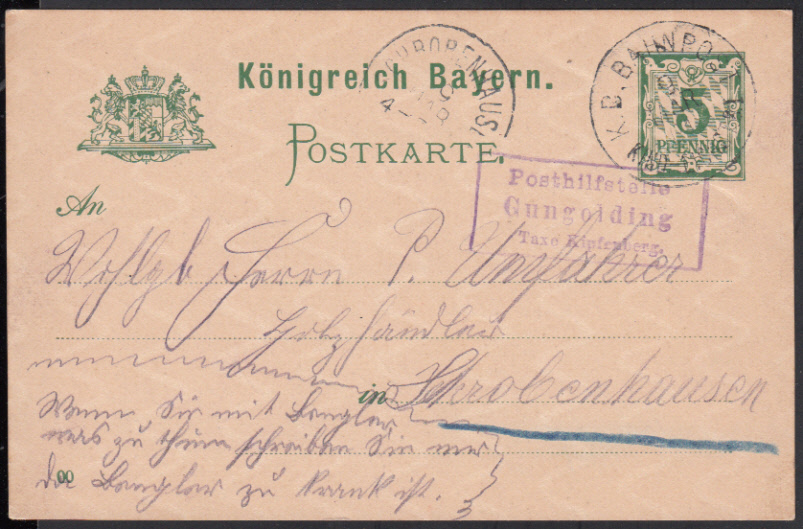 Königreich Bayern.
POSTKARTE.
SCHROBENHAUSEN
4-
K.B. BAHNPOST
5
PFENNIG
Posthilfstelle
Gungolding
Taxe Kipfenberg.
An
Wohlgb Herrn P. Umfahrer
Holzhändler
in Schrobenhausen
Wenn Sie mit Bengler
was zu thun schreiben Sie mir
da Bengler zu krank ist.
00